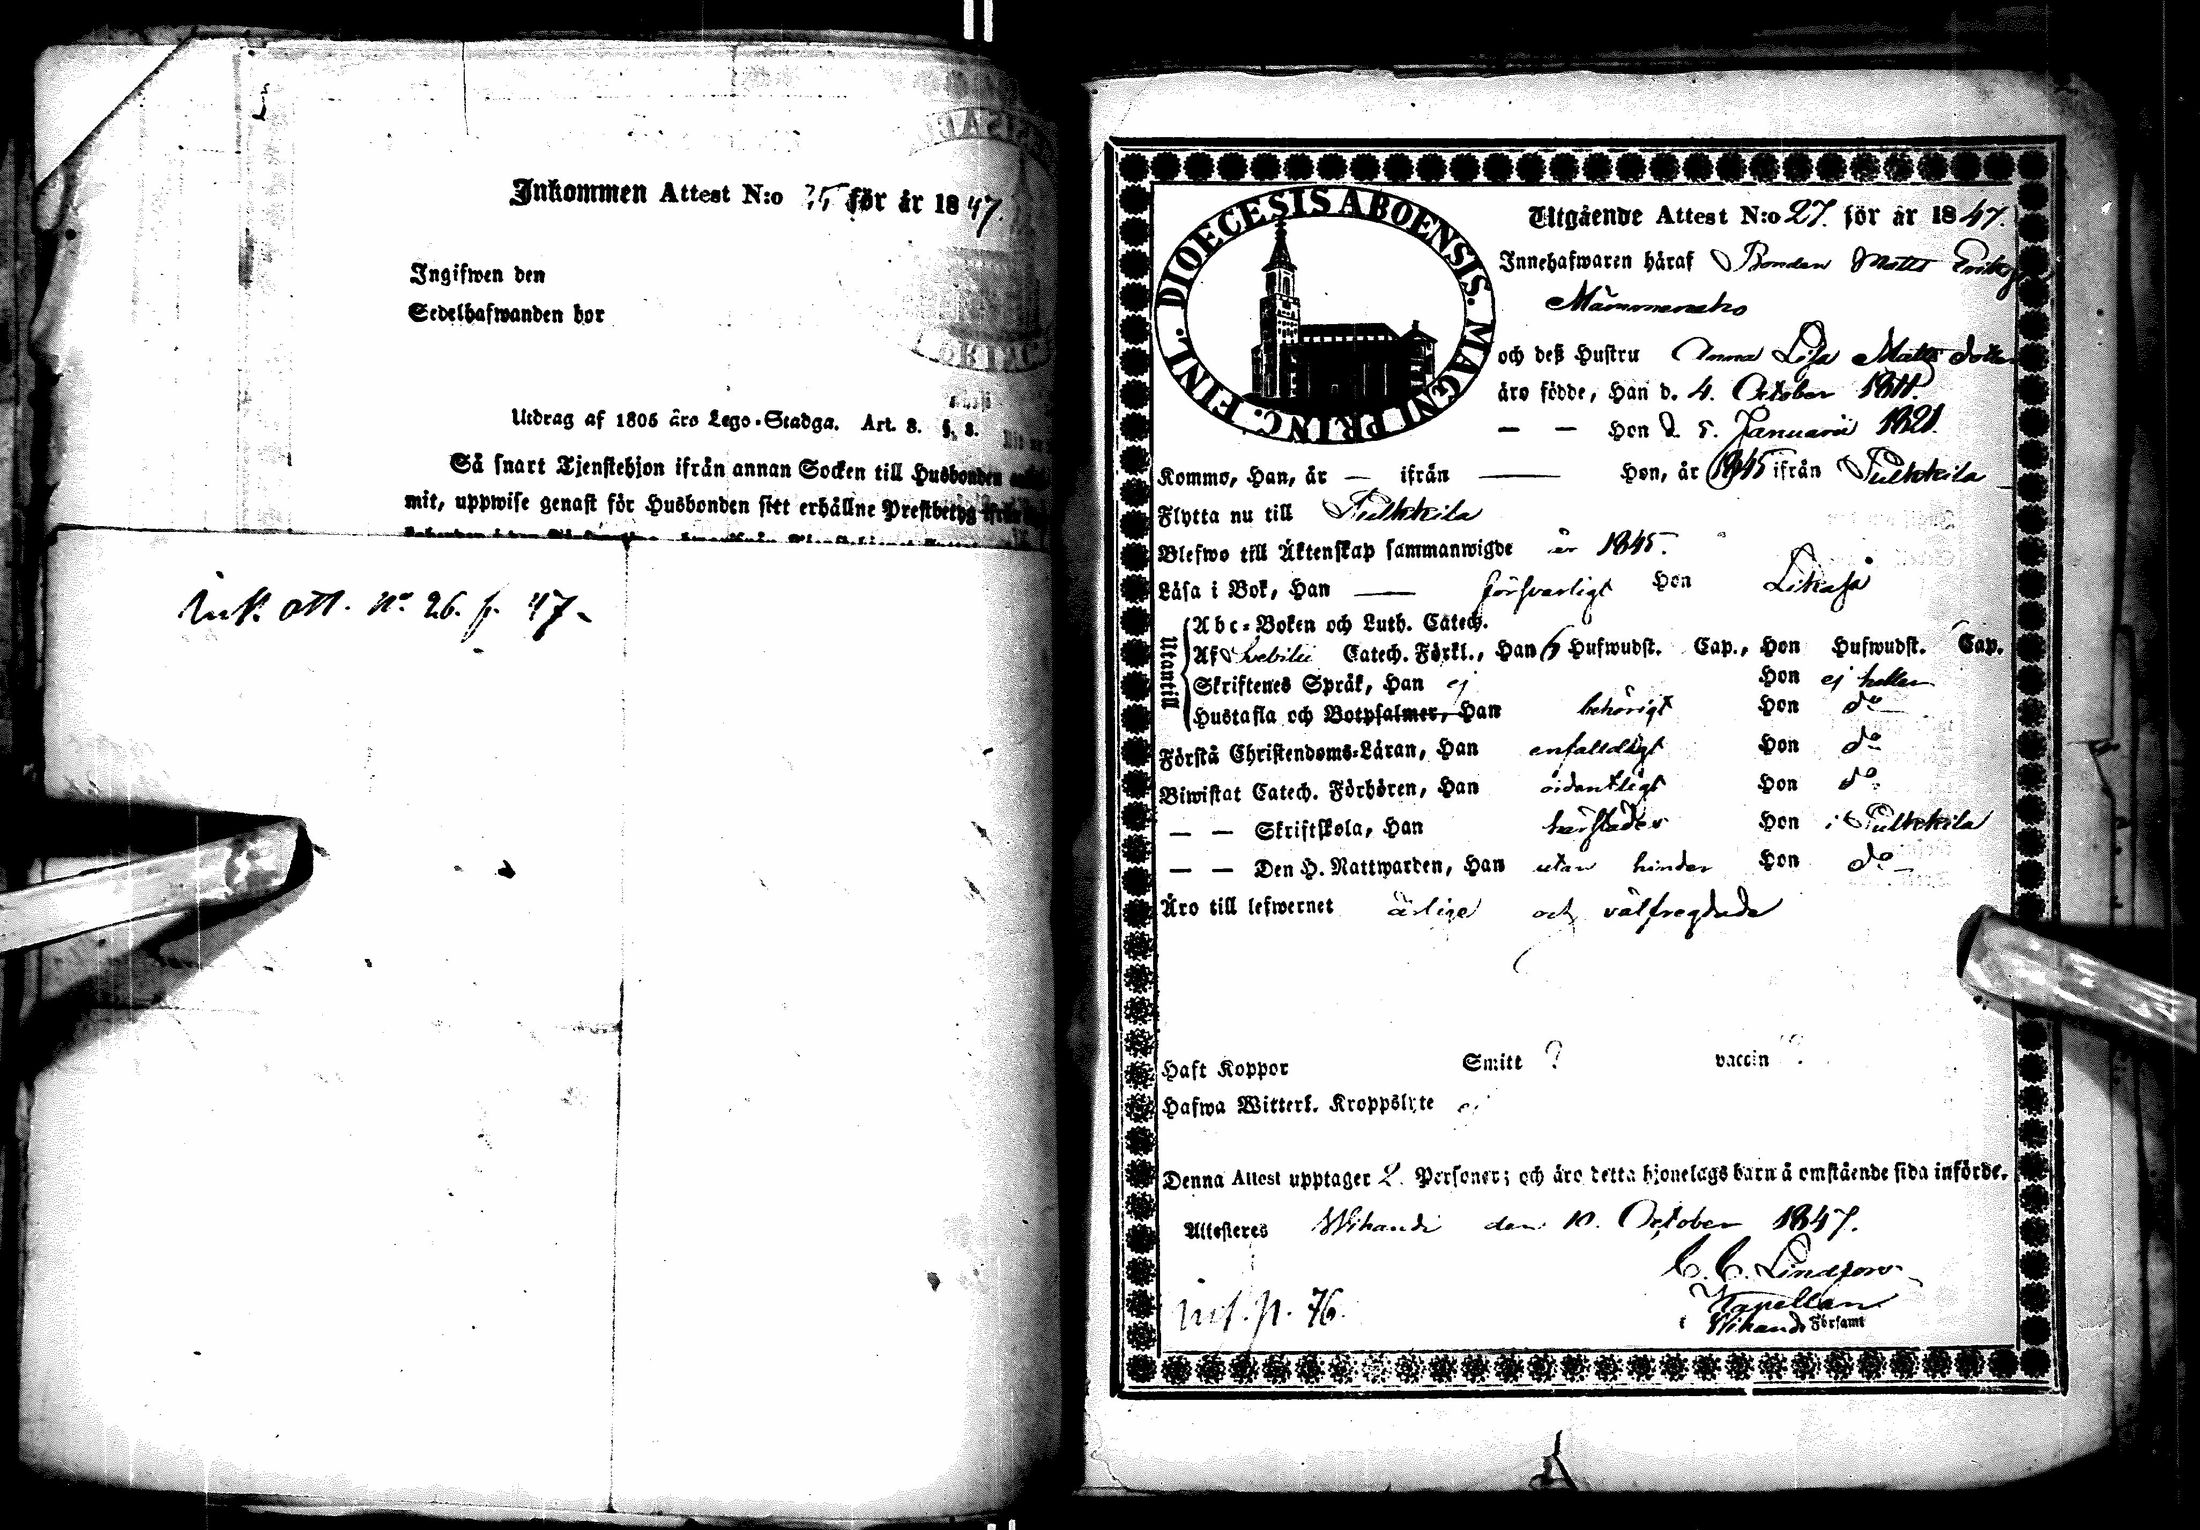 Inkommen Attest N:o 25 för år 1847.
Ingifwen den
Sedelhafwanden bor
Utdrag af 1805 års Lego-Stadga. Art. 3. §. 8.
Så snart Tjenstehjon ifrån annan Socken till Husbonden
mit, uppwise genast för Husbonden sitt erhållne Prestbetyg ifrån
Ink. att. no 26. p. 47.
DIOECESIS ABOENSIS. MAGNI PRINC. FINL.
Utgående Attest N:o 27. för år 1847.
Innehafwaren häraf Bonden Matts Eriksson
och deß Hustru Anna Lisa Matts dotter
äro födde, Han d. 4. October 1811.
— — Hon d. 5. Januarii 1821.
Kommo, Han, år — ifrån — Hon, år 1845 ifrån Pulkkila
Flytta nu till Pulkkila
Blefwo till Äktenskap sammanwigde år 1845.
Läsa i Bok, Han — försvarligt Hon Likaså
Utantill
Abc-Boken och Luth. Catech.
Af Svebilii Catech. Förkl., Han 6 Hufwudst. Cap., Hon Hufwudst. Cap.
Skriftenes Språk, Han ej Hon ej heller
Hustafla och Botpsalmer, Han behörigt Hon do
Förstå Christendoms-Läran, Han enfaldigt Hon do
Biwistat Catech. Förhören, Han ordentligt Hon do
— — Skriftskola, Han härstädes Hon i Pulkkila
— — Den H. Nattwarden, Han utan hinder Hon do
Äro till lefwernet ärlige och välfregdade
Haft Koppor Smitt ? vaccin ?
Hafwa Witterl. Kroppslyte ej
Denna Attest upptager 2. Personer; och äro detta hjonelags barn å omstående sida införde.
Attesteres Wihandi den 10. October 1847.
C. C. Lindfors
Kapellan
i Wihandi Församl
inf. p. 76.